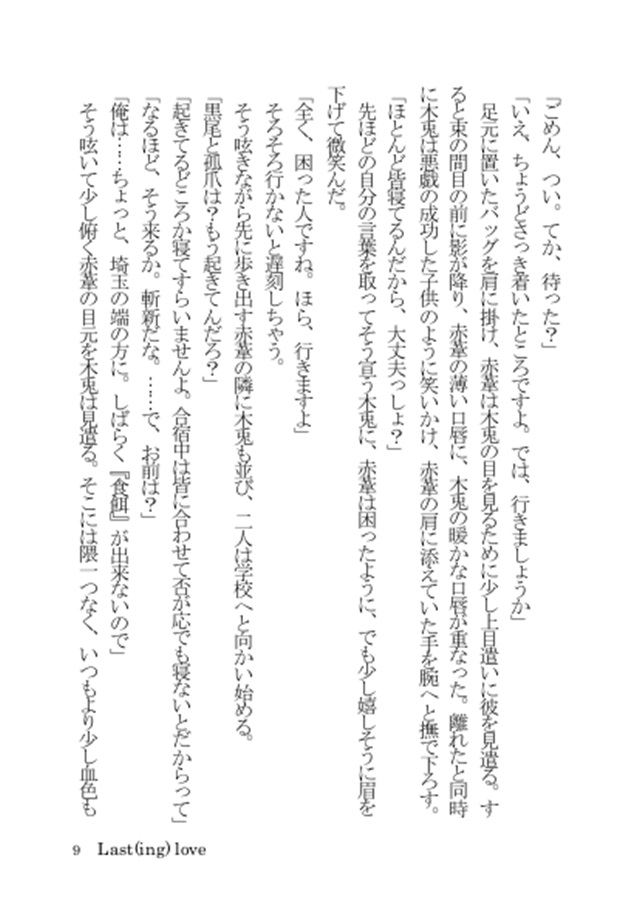 「ごめん、つい。てか、待った？」
「いえ、ちょうどさっき着いたところですよ。では、行きましょうか」
足元に置いたバッグを肩に掛け、赤葦は木兎の目を見るために少し上目遣いに彼を見遣る。す
ると束の間目の前に影が降り、赤葦の薄い口唇に、木兎の暖かな口唇が重なった。離れたと同時
に木兎は悪戯の成功した子供のように笑いかけ、赤葦の肩に添えていた手を腕へと撫で下ろす。
「ほとんど皆寝てるんだから、大丈夫っしょ？」
先ほどの自分の言葉を取ってそう宣う木兎に、赤葦は困ったように、でも少し嬉しそうに眉を
下げて微笑んだ。
「全く、困った人ですね。ほら、行きますよ」
そろそろ行かないと遅刻しちゃう。
そう呟きながら先に歩き出す赤葦の隣に木兎も並び、二人は学校へと向かい始める。
「黒尾と孤爪は？もう起きてんだろ？」
「起きてるどころか寝てすらいませんよ。合宿中は皆に合わせて否が応でも寝ないとだからって」
「なるほど、そう来るか。斬新だな。……で、お前は？」
「俺は……ちょっと、埼玉の端の方に。しばらく『食餌』が出来ないので」
そう呟いて少し俯く赤葦の目元を木兎は見遣る。そこには隈一つなく、いつもより少し血色も
9 Last(ing) love